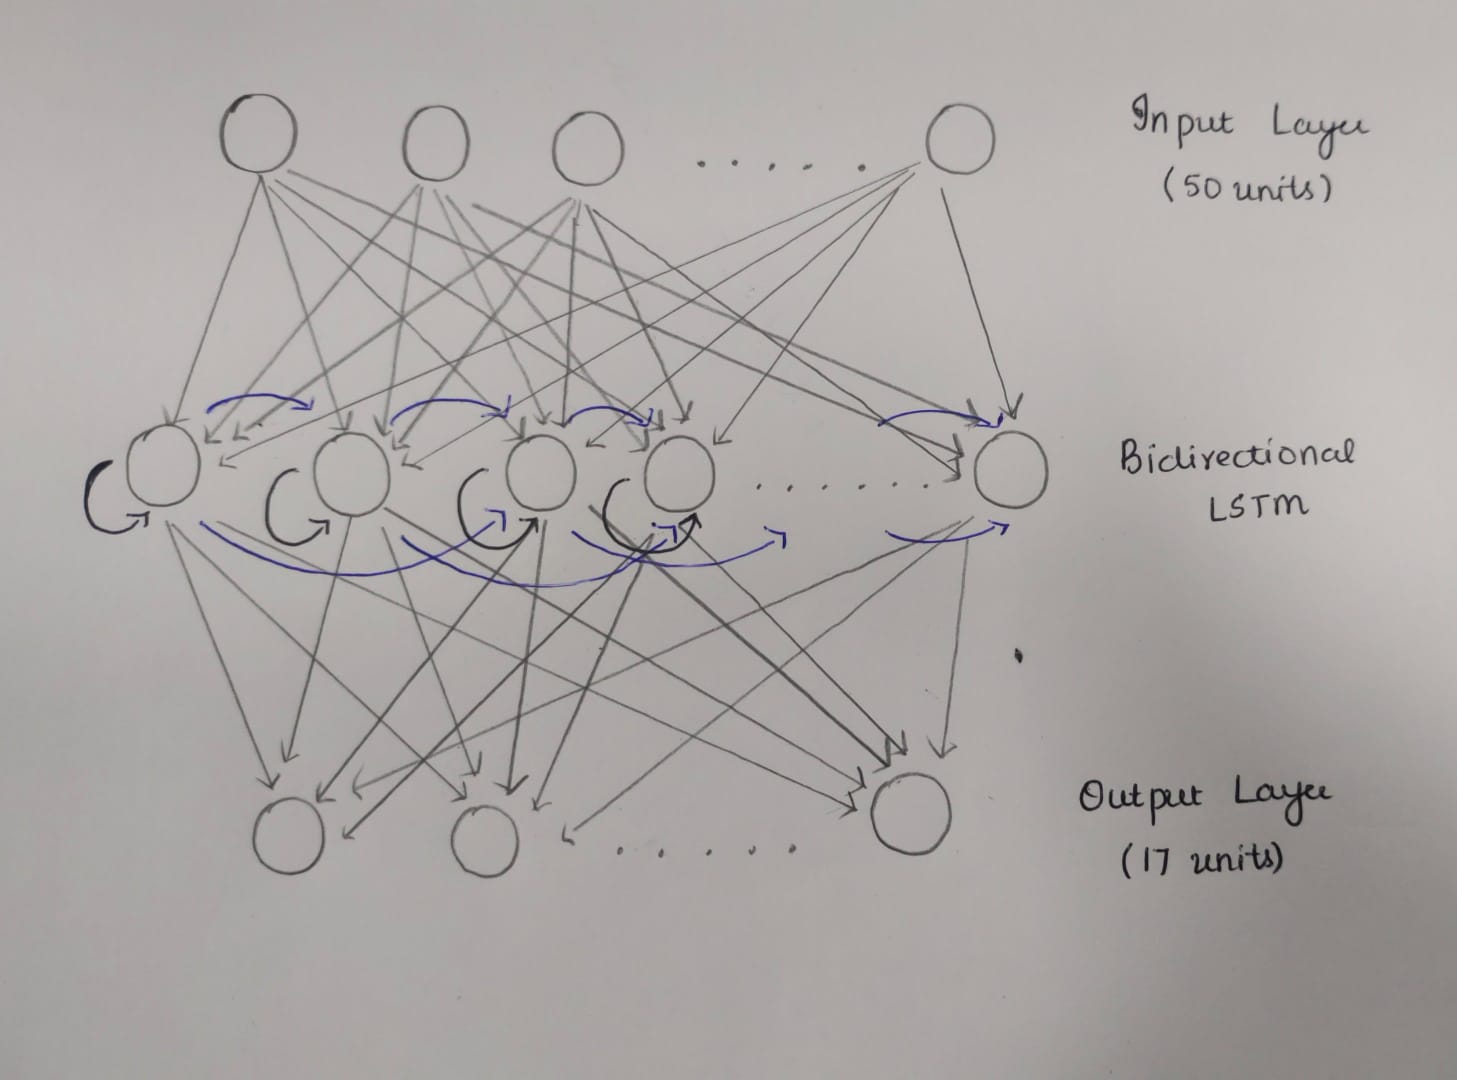 Input Layer
(50 units)
Bidirectional
LSTM
Output Layer
(17 units)